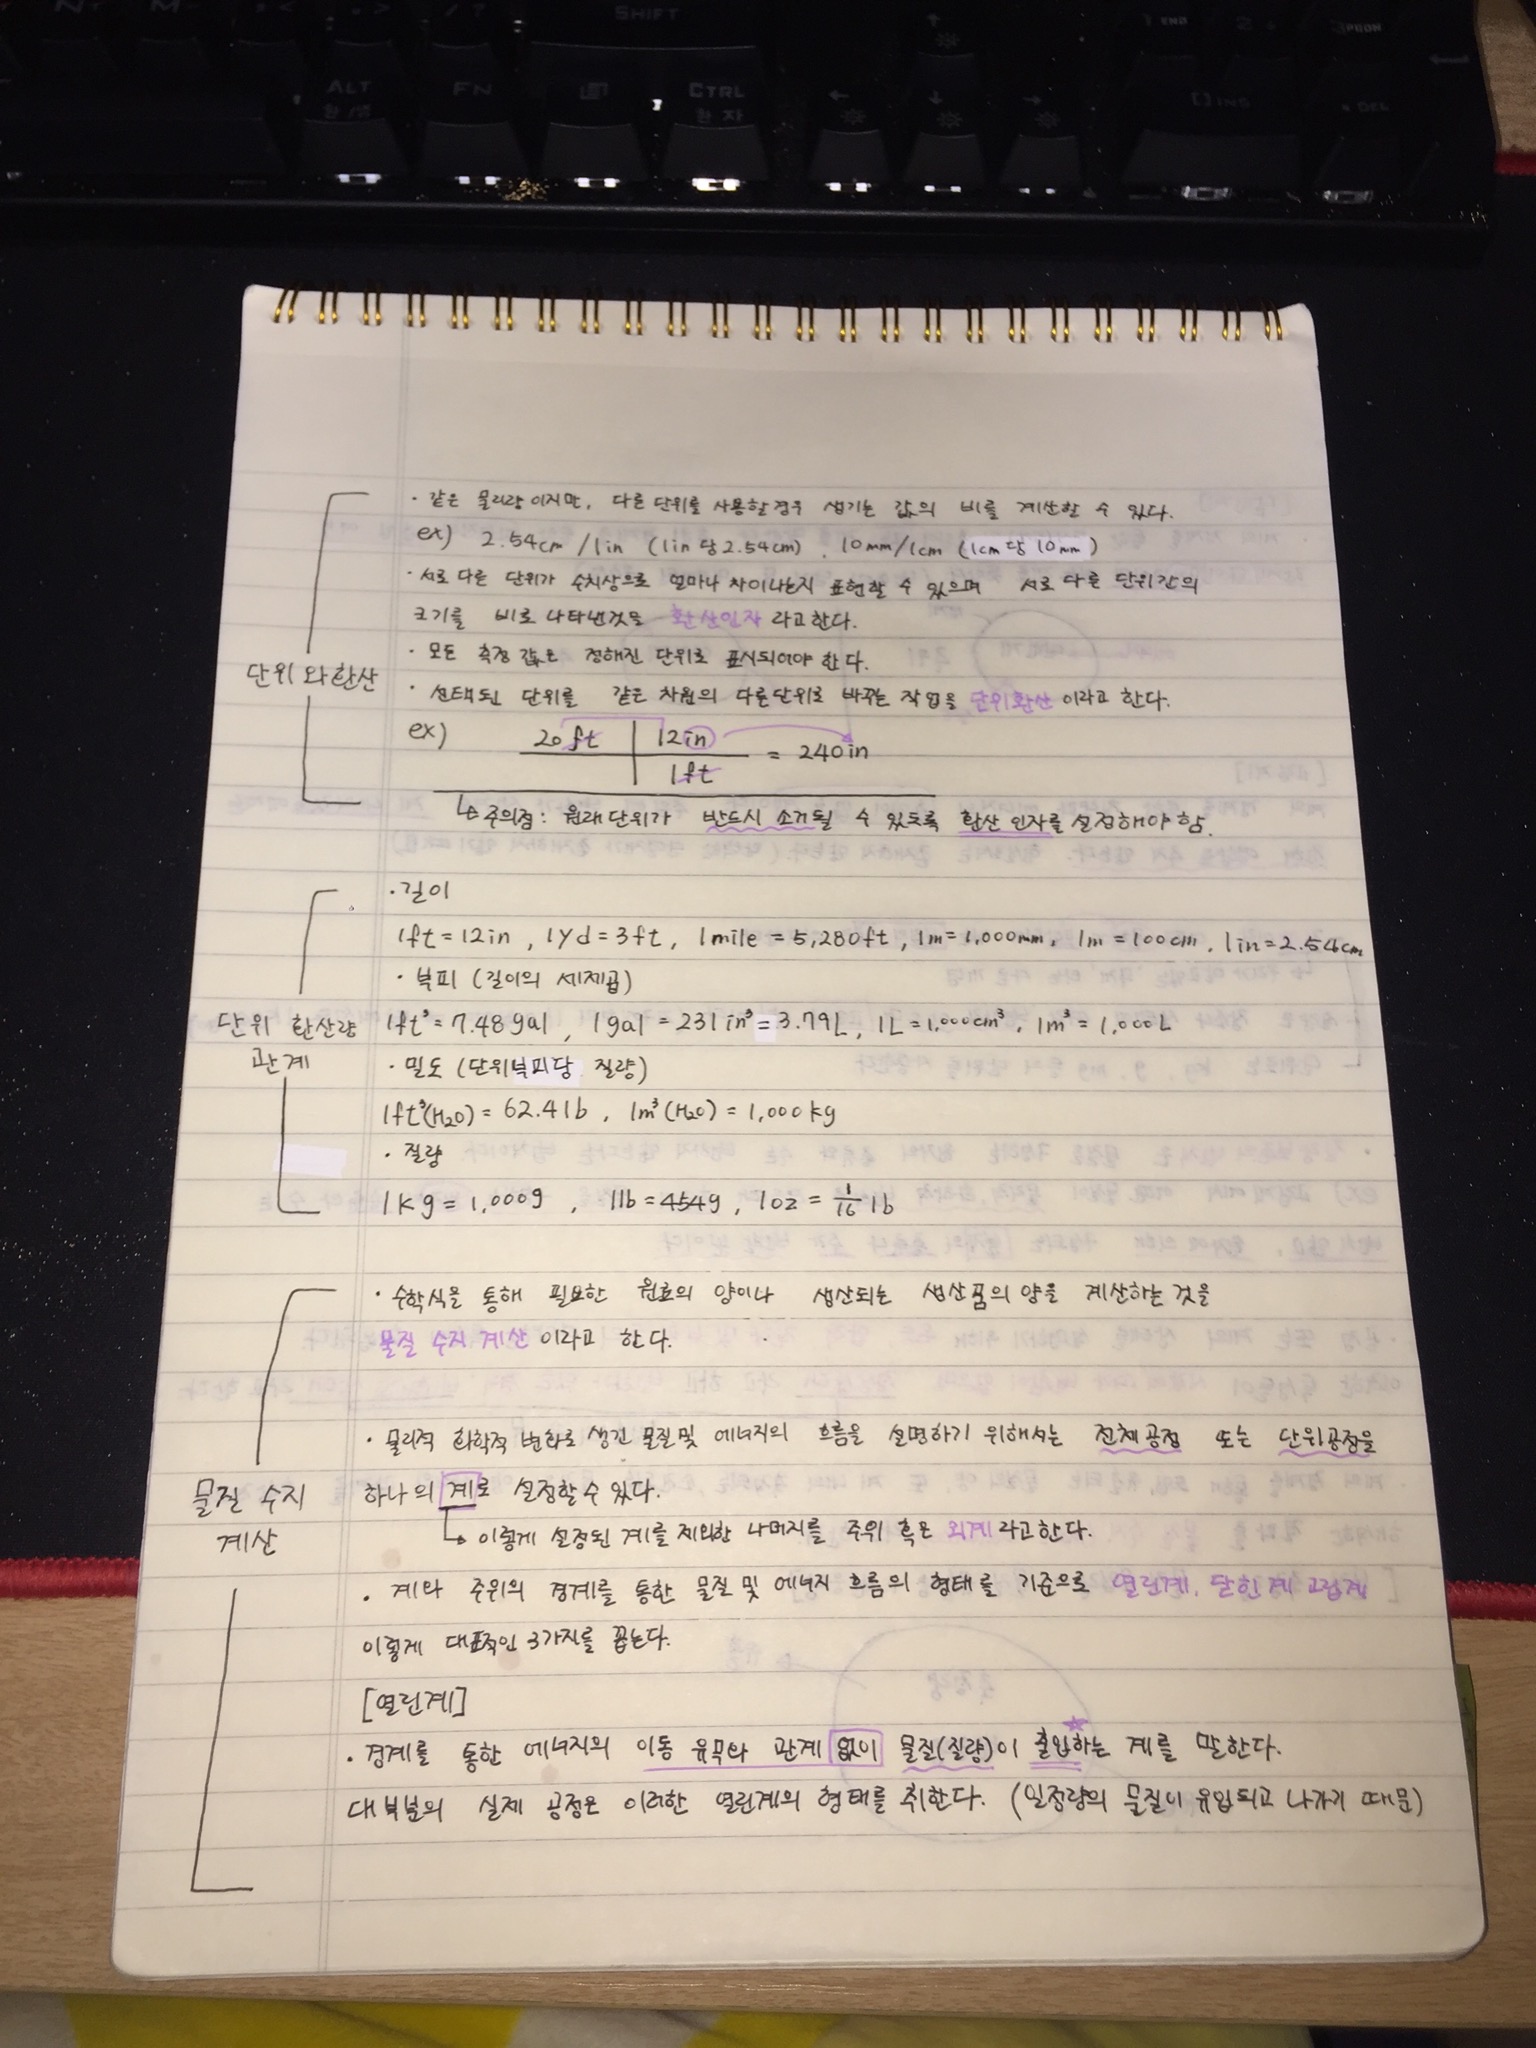 SHIFT
ALT
한/영
FN
CTRL
한자
INS
DEL
END
PGDN
· 같은 물리량이지만, 다른 단위를 사용할경우 생기는 값의 비를 계산할 수 있다.
ex) 2.54cm/1in (1in 당 2.54cm), 10mm/1cm (1cm당 10mm)
· 서로 다른 단위가 수치상으로 얼마나 차이나는지 표현할 수 있으며 서로 다른 단위간의
크기를 비로 나타낸것을 환산인자 라고한다.
단위와환산
· 모든 측정 값은 정해진 단위로 표시되어야 한다.
· 선택된 단위를 같은 차원의 다른단위로 바꾸는 작업을 단위환산 이라고 한다.
ex) 20ft | 12in = 240in
1ft
↳ 주의점: 원래단위가 반드시 소거될 수 있도록 환산인자를 설정해야 함.
· 길이
1ft = 12in, 1yd = 3ft, 1mile = 5,280ft, 1m = 1,000mm, 1m = 100cm, 1in = 2.54cm
· 부피 (길이의 세제곱)
단위 환산량
관계
1ft³ = 7.48gal, 1gal = 231in³ = 3.79L, 1L = 1,000cm³, 1m³ = 1,000L
· 밀도 (단위부피당 질량)
1ft³(H₂O) = 62.4lb, 1m³(H₂O) = 1,000kg
· 질량
1kg = 1,000g, 1lb = 454g, 1oz = 1/16 lb
· 수학식을 통해 필요한 원료의 양이나 생산되는 생산품의 양을 계산하는 것을
물질 수지 계산 이라고 한다.
· 물리적 화학적 변화로 생긴 물질및 에너지의 흐름을 설명하기 위해서는 전체공정 또는 단위공정을
물질 수지
계산
하나의 계로 설정할수 있다.
↳ 이렇게 설정된 계를 제외한 나머지를 주위 혹은 외계라고한다.
· 계와 주위의 경계를 통한 물질 및 에너지 흐름의 형태를 기준으로 열린계, 닫힌계 고립계
이렇게 대표적인 3가지를 꼽는다.
[열린계]
· 경계를 통한 에너지의 이동 유무와 관계 없이 물질(질량)이 출입하는 계를 말한다.
대부분의 실제 공정은 이러한 열린계의 형태를 취한다. (일정량의 물질이 유입되고 나가기 때문)